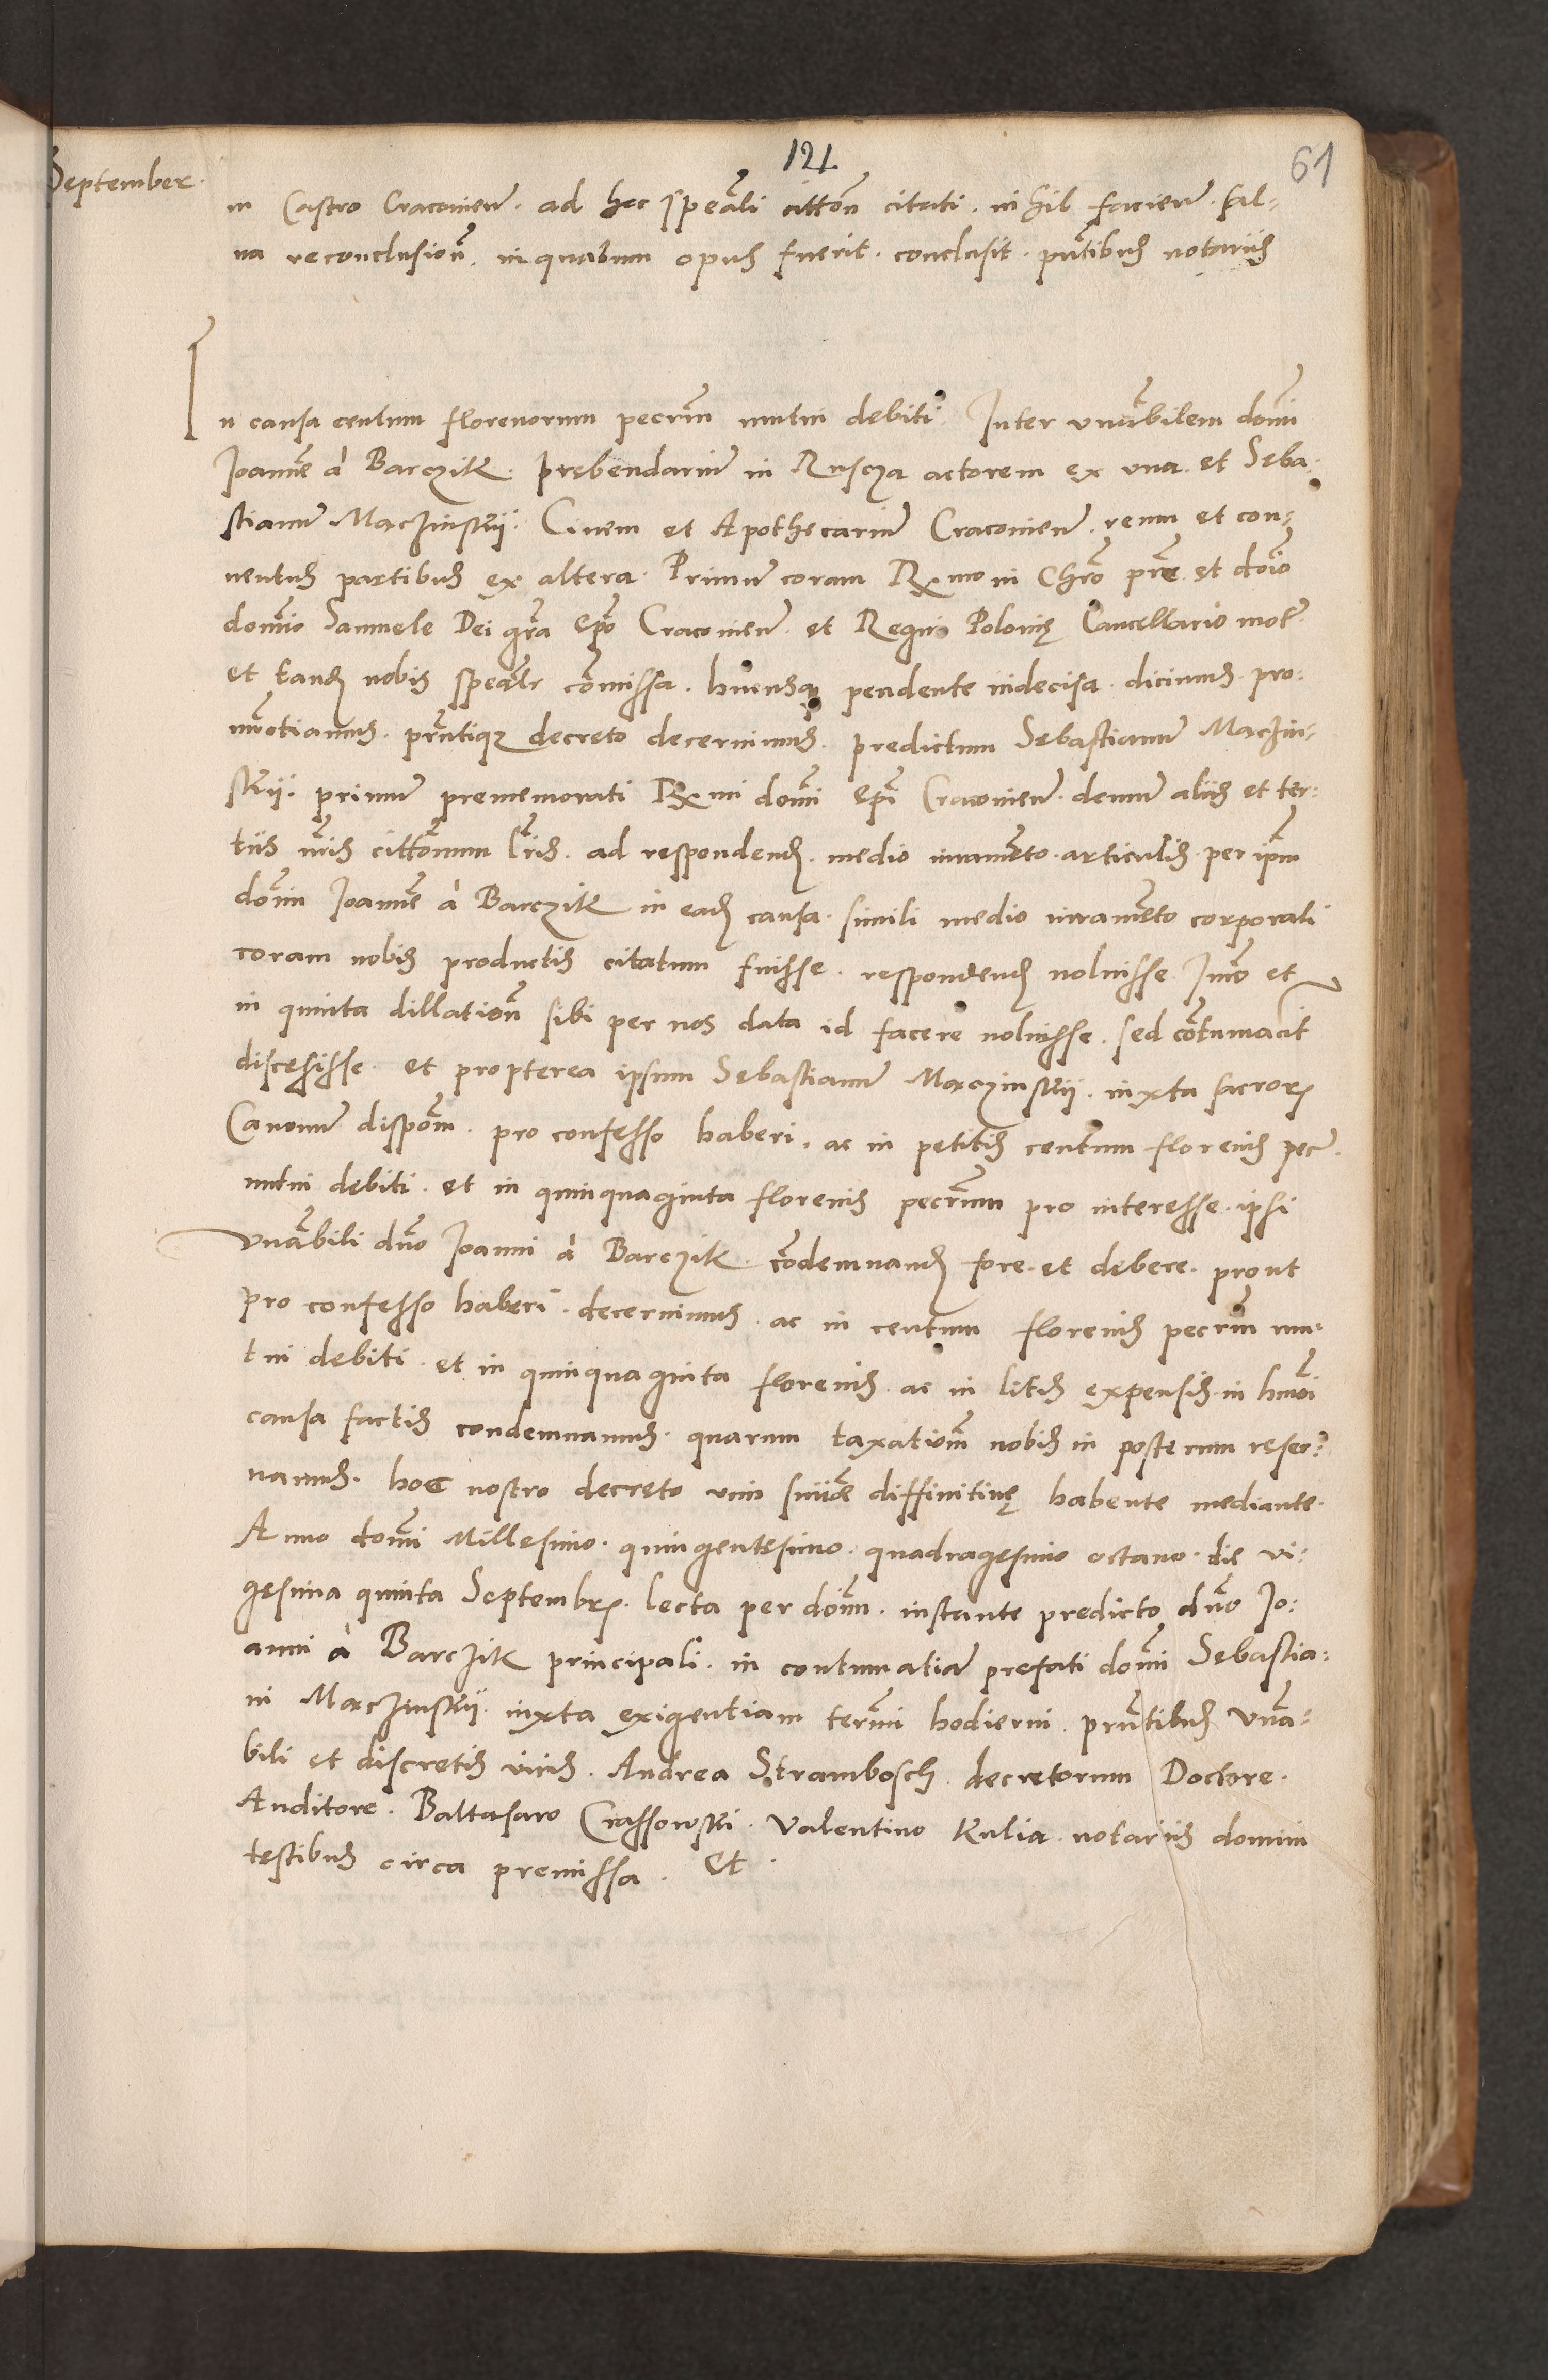 121
61
September.
in Castro Cracovien̄. ad hoc spẽali cittoñ citati. nihil facien̄. sal-
va reconclusioñ. in quantum opus fuerit. conclusit. pñtibus notariis
In causa centum florenorum pecr̃m mutui debiti. Inter vnãbilem dom̃
Joannē à Barczik. prębendariū in Ruscza actorem ex una. et Seba-
stianū Maczinskii. Civem et Apothecariū Cracovien̄. reum et con-
ventus partibus ex altera. Primū coram Rx̄mo in Chro prẽ. et dõio
dom̃io Samuele Dei grã ep̃o Cracovien̄. et Regni Polonię Cancellario mot̄.
et tandē nobis speãlr com̃issa. hucusq; pendente indecisa. dicimus. pro-
nuñtiamus. prñtiq; decreto decernimus. predictum Sebastianū Maczin-
skii. primū prememorati Rx̄mi dom̃i ep̃i Cracovien̄. demū aliis et ter-
tiis nr̃is cittõnum lr̃is. ad respondend̄. medio iuramẽto. articulis. per ip̃m
dom̃i Joannē à Barczik in ead̄ causa. simili medio iuramẽto corporali
coram nobis productis citatum fuisse. respondend̄ noluisse. Imõ et
in quinta dillatioñ sibi per nos data id facere noluisse. sed cõtumacit̄
discessisse. et propterea ipsum Sebastianū Maczinskii. iuxta sacror̄
Canonū dispõm. pro confesso haberi. ac in petitis centum florenis pec̄.
mutui debiti. et in quinquaginta florenis pecr̃um pro interesse. ipsi
vnãbili dño Joanni à Barczik. cõdemnand̄ fore. et debere. prout
pro confesso haberi. decernimus. ac in centum florenis pecr̃m mu-
tui debiti. et in quinquaginta florenis. ac in litis expensis. in hm̃oi
causa factis condemnamus. quarum taxatioñm nobis in posterum reser-
vamus. hoc nostro decreto vim sñiæ diffinitivę habente mediante.
Anno dom̃i Millesimo. quingentesimo. quadragesimo octavo. die vi-
gesima quinta Septembr̄. lecta per doñm. instante predicto dño Jo-
anni à Barczik principali. in contumatiā prefati dom̃i Sebastia-
ni Maczinskii. iuxta exigentiam term̃i hodierni. prñtibus vnã-
bili et discretis viris. Andrea Strambosch. decretorum Doctore.
Auditore. Baltasaro Crassowski. Valentino Kulia. notariis domini
testibus circa premissa. Et.